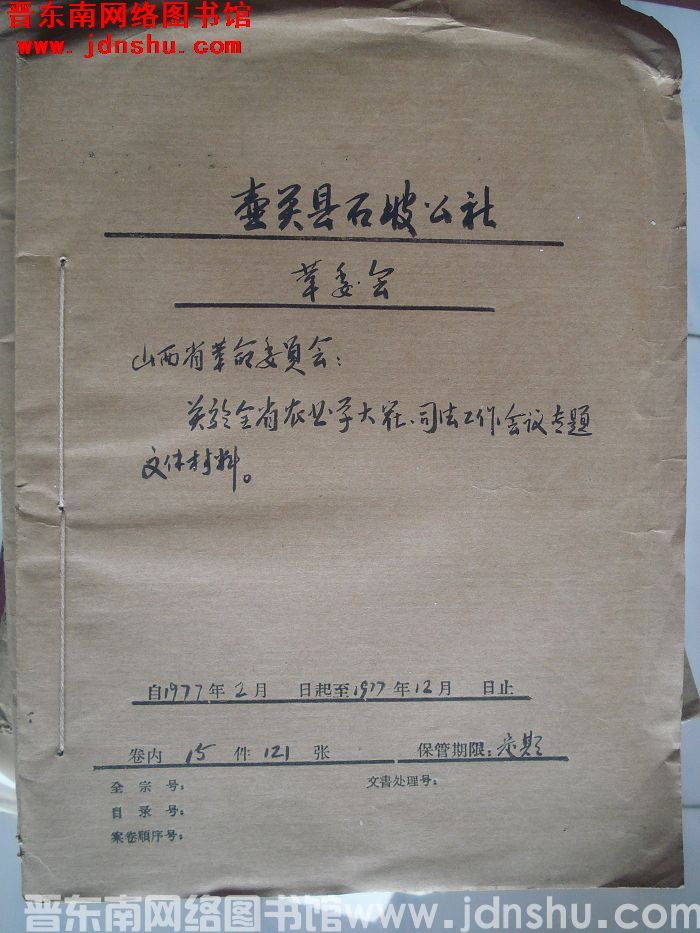 晋东南网络图书馆
www.jdnshu.com
壶关县石坡公社
革委会
山西省革命委員会：
关於全省农业学大寨、司法工作会议专题
文件材料。
自1977年2月 日起至1977年12月 日止
卷内 15 件 121 张 保管期限：定期
全宗号： 文書处理号：
目录号：
案卷順序号：
晋东南网络图书馆 www.jdnshu.com